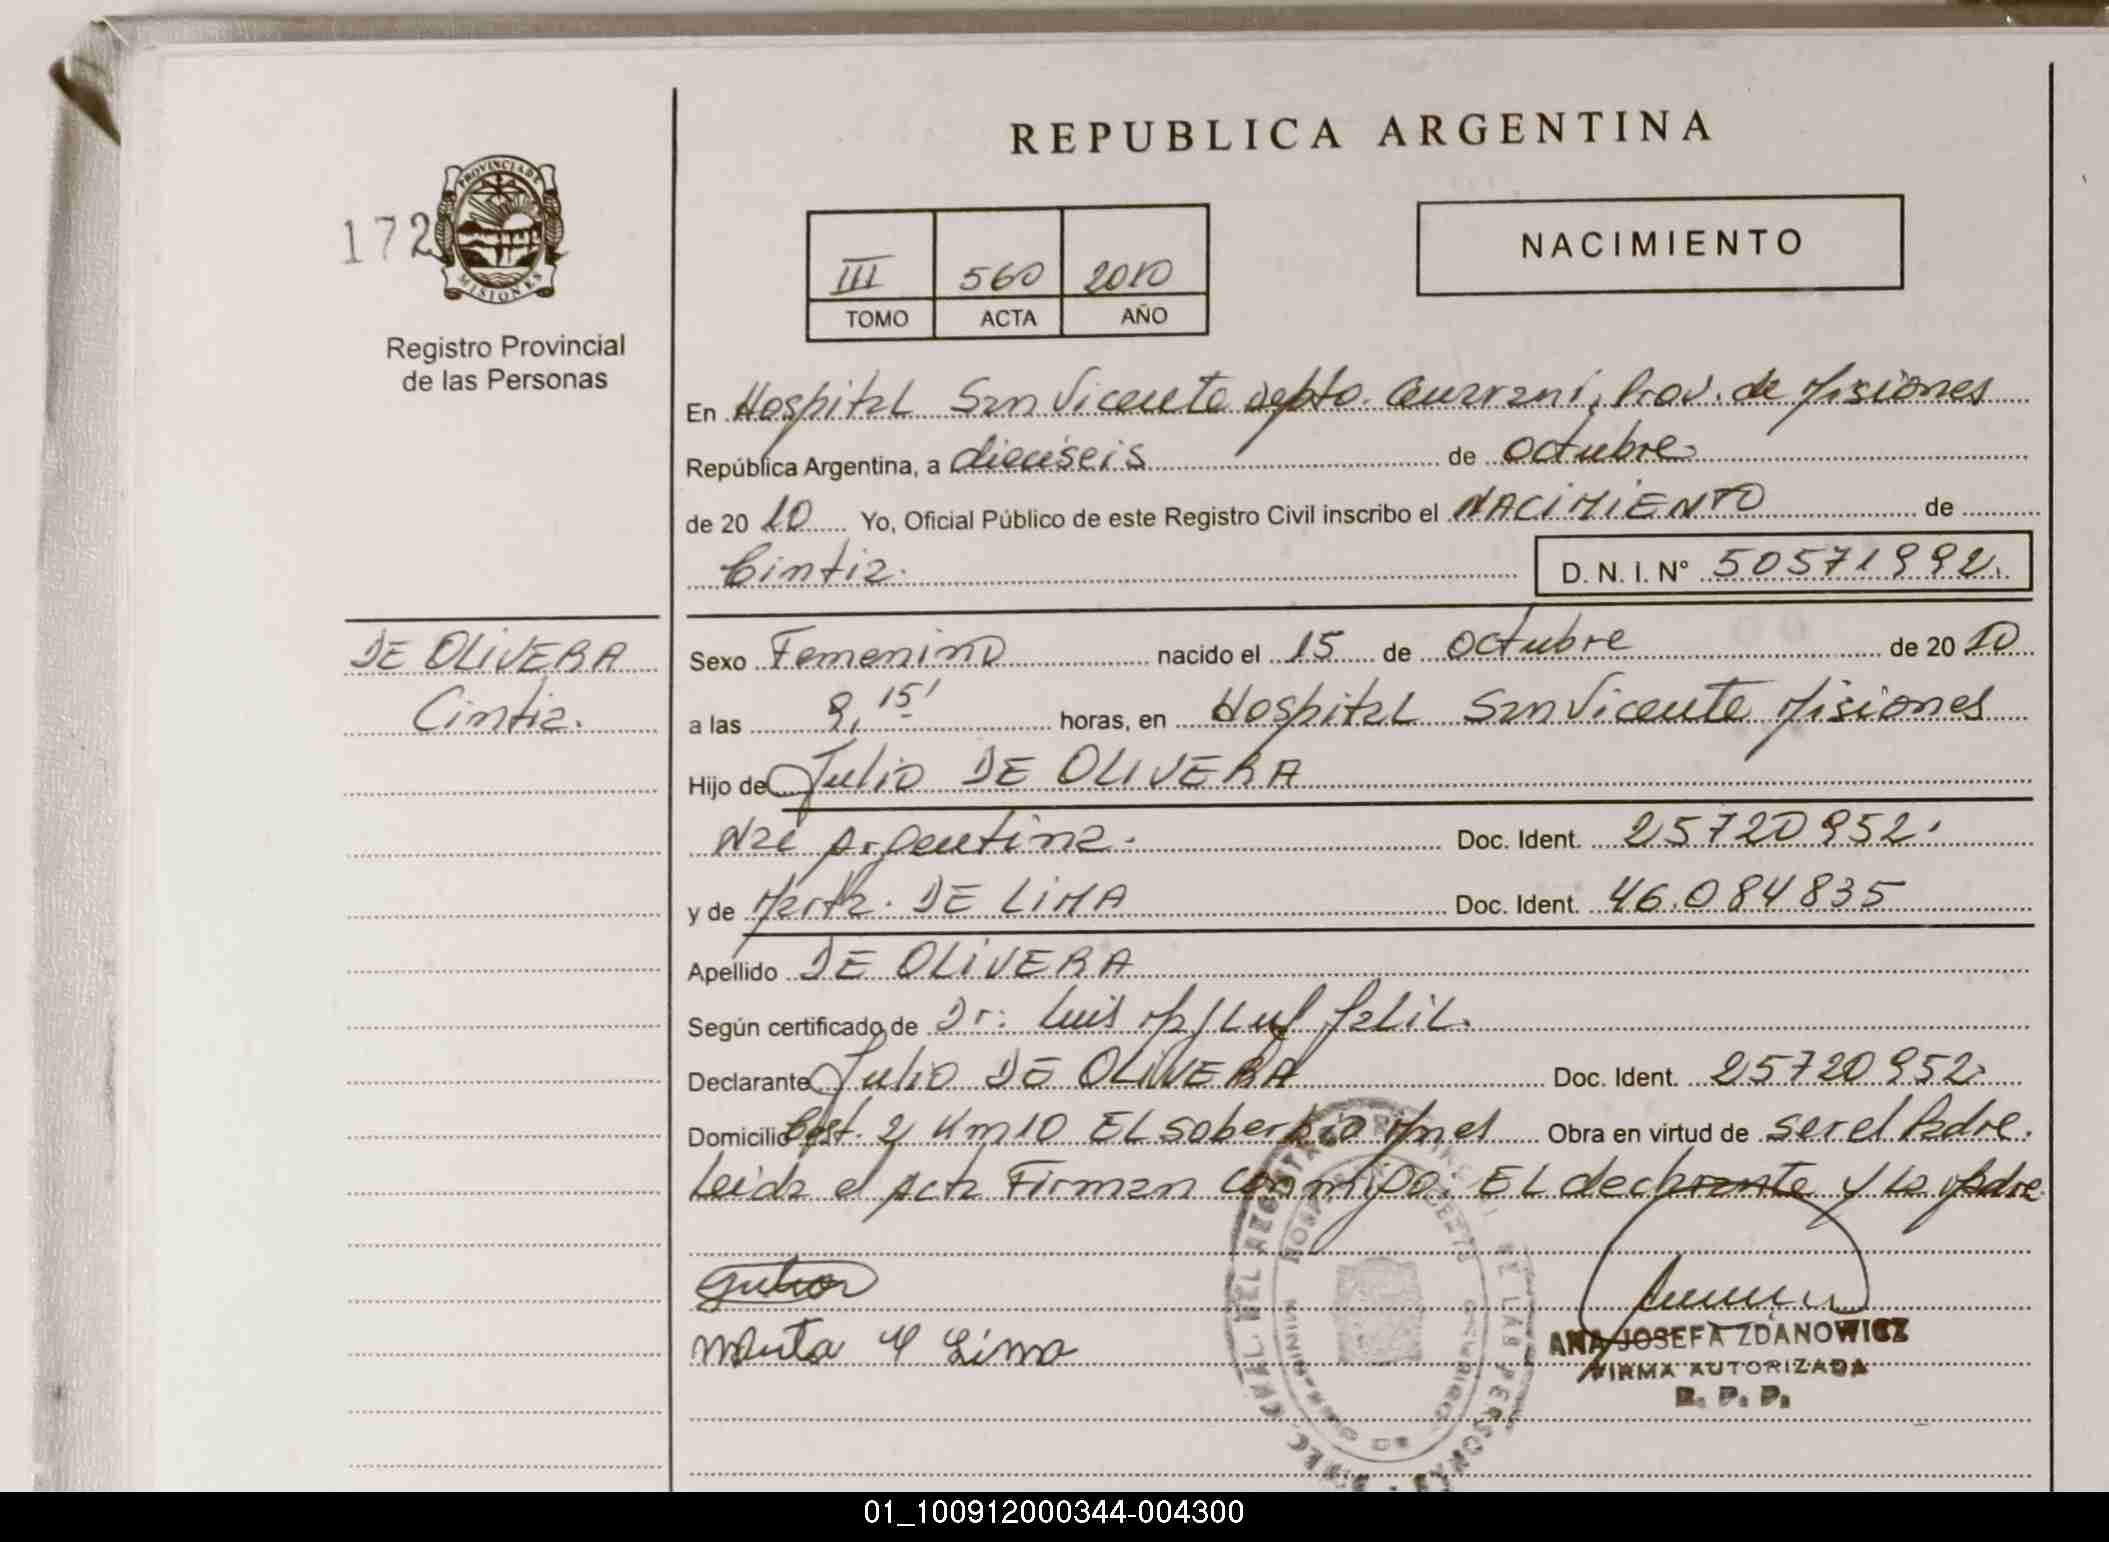 REPUBLICA ARGENTINA
172
PROVINCIA DE
MISIONES
Registro Provincial
de las Personas
III 560 2010
TOMO ACTA AÑO
NACIMIENTO
En Hospital San Vicente Depto. Guarani, Prov. de Misiones
República Argentina, a dieciseis de octubre
de 20 10 Yo, Oficial Público de este Registro Civil inscribo el NACIMIENTO de
Cintia. D. N. I. N° 50571992.
DE OLIVERA
Cintia.
Sexo Femenino nacido el 15 de octubre de 20 10
a las 9,15' horas, en Hospital San Vicente Misiones
Hijo de Julio DE OLIVERA
Nac Argentina. Doc. Ident. 25720952.
y de Marta. DE LIMA Doc. Ident. 46.084835
Apellido DE OLIVERA
Según certificado de Dr: Luis
Declarante Julio DE OLIVERA Doc. Ident. 25720952.
Domicilio 2 Km10 EL soberbio Mnes Obra en virtud de ser el Padre.
Leida el Acta Firman conmigo. EL declarante y la Madre
Marta Lima
ANA JOSEFA ZDANOWICZ
FIRMA AUTORIZADA
R. P. P.
01_100912000344-004300